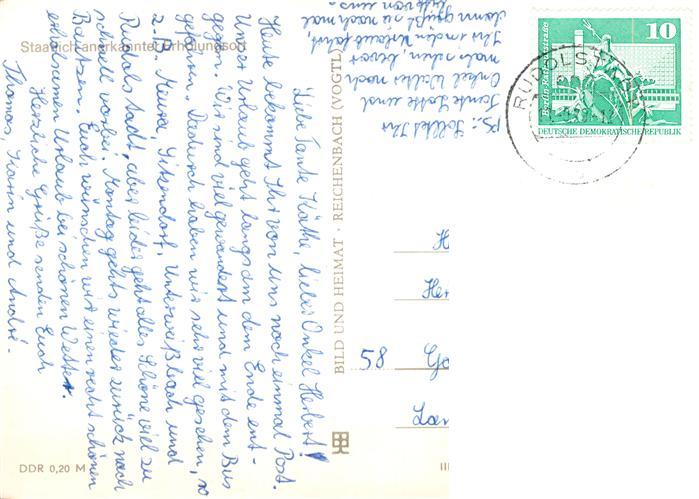 Staatlich anerkannter Erholungsort
Liebe Tante Käthe, lieber Onkel Herbert!
Heute bekommt Ihr von uns noch einmal Post.
Unser Urlaub geht langsam dem Ende ent-
gegen. Wir sind viel gewandert und mit dem Bus
gefahren. Dadurch haben wir sehr viel gesehen, so
z.B. Neura Sitzendorf, Unterweißbach und
Rudolstadt, aber leider geht alles Schöne viel zu
schnell vorbei. Montag gehts wieder zurück nach
Bautzen. Euch wünschen wir einen recht schönen
erholsamen Urlaub bei schönen Wetter.
Herzliche Grüße senden Euch
Thomas, Karin und André.
PS.: Solltet Ihr
Tante Lotte und
Onkel Walter noch
mal sehen, bevor
Ihr in den Urlaub fahrt,
dann grüßt sie noch mal
lieb von uns.
BILD UND HEIMAT · REICHENBACH (VOGTL
10
DEUTSCHE DEMOKRATISCHE REPUBLIK
RUDOLSTADT
58
DDR 0,20 M
III